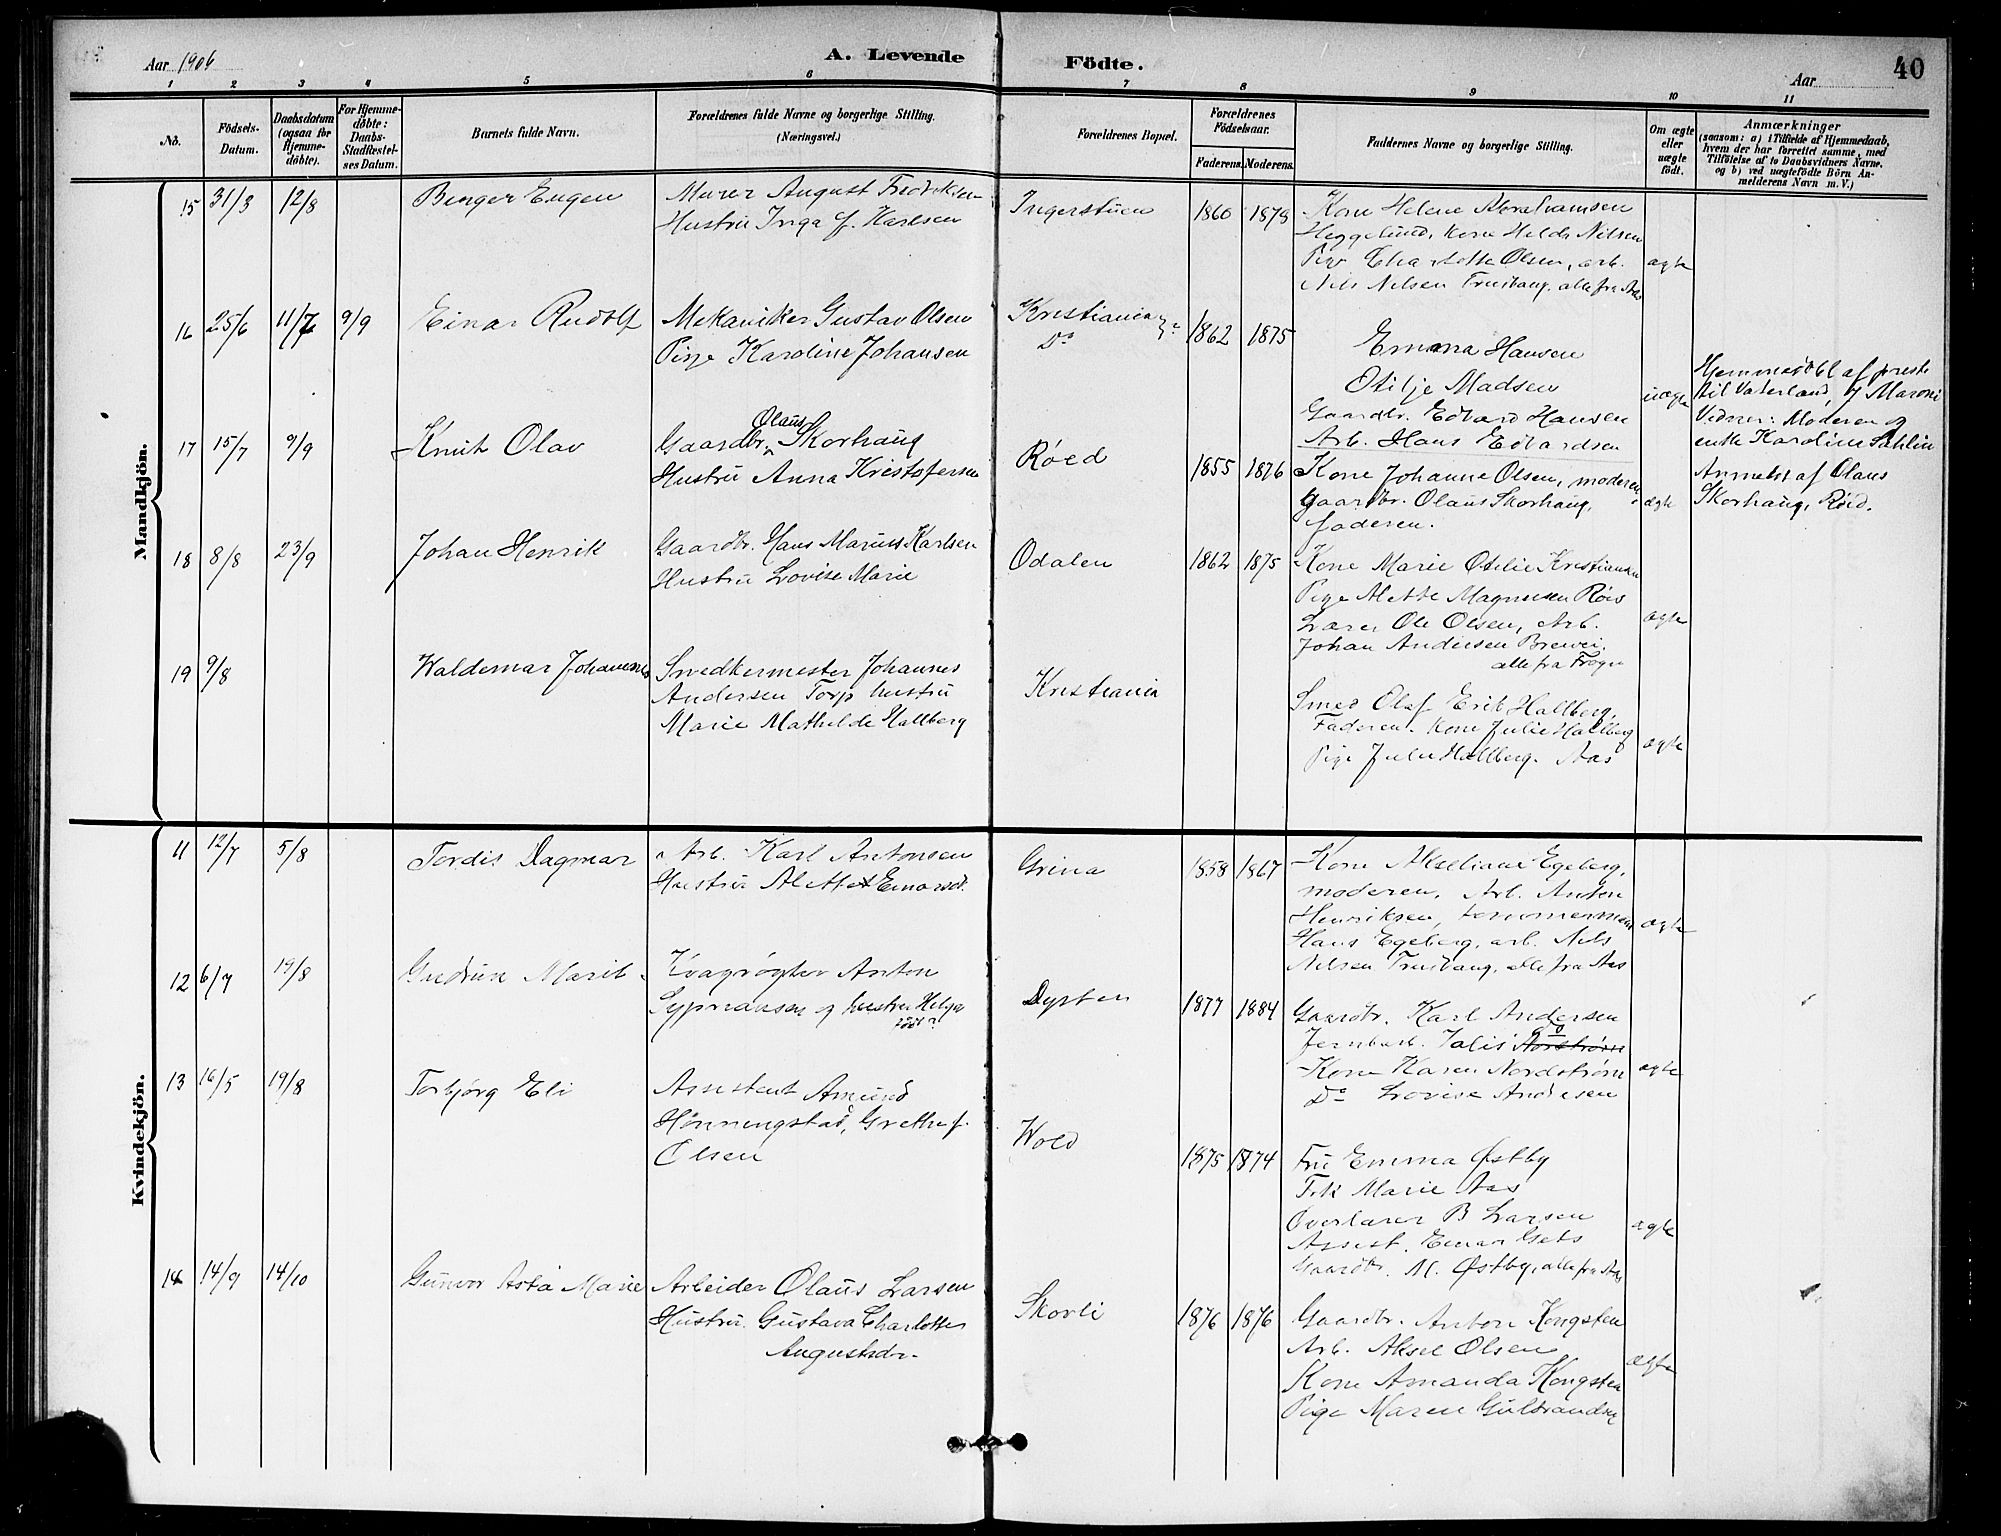 Aar 1906
A. Levende
Födte.
Aar
40
1 2 3 4 5 6 7 8 9 10 11
No.
Födsels-
Datum.
Daabsdatum
(ogsaa for
Hjemme-
döbte).
For Hjemme-
döbte:
Daabs-
Stadfæstel-
ses Datum.
Barnets fulde Navn.
Forældrenes fulde Navne og borgerlige Stilling.
(Næringsvei.)
Forældrenes Bopæl.
Forældrenes
Födselsaar.
Faderens. Moderens.
Faddernes Navne og borgerlige Stilling.
Om ægte
eller
uægte
födt.
Anmærkninger
(saasom: a) i Tilfælde af Hjemmedaab,
hvem der har forrettet samme, med
Tilföielse af to Daabsvidners Navne.
og b) ved uægtefödte Börn An-
melderens Navn m. V.)
Mandkjön.
15 31/3 12/8
Birger Eugen
Murer August Fredriksen
Hustru Inga f. Karlsen
Ingerstuen
1860 1878
Kone Helene Abrahamsen
Heggelund, Kone Hilda Nilsen
Pige Charlotte Olsen, arb.
Nils Nilsen Trusvang, alle fra Aas
ægte
16 25/6 11/7 9/9
Einar Rudolf
Mekaniker Gustav Olsen
Pige Karoline Johansen
Kristiania
Do
1862 1875
Emma Hansen
Otilje Madsen
Gaardbr. Edvard Hansen
Arb. Hans Edvardsen
uægte
Hjemmedøbt af prest
til Vaterland,
Vidner: Moderen og
enke Karoline Sahlin
Anmeldt af Olaus
Skorhaug, Røed.
17 15/7 9/9
Knut Olav
Olaus
Gaardbr. Skorhaug
Hustru Anna Kristofersen
Røed
1855 1876
Kone Johanne Olsen, moderen,
Gaardbr. Olaus Skorhaug,
faderen.
ægte
18 8/8 23/9
Johan Henrik
Gaardbr. Hans Marius Karlsen
Hustru Lovise Marie
Odalen
1862 1875
Kone Marie Otilie Kristiansen
Pige Alette Magnusen Røis
Lærer Ole Olsen, Arb.
Johan Andersen Brevei,
alle fra Frogn
ægte
19 9/8
Waldemar Johannes
Snedkermester Johannes
Andersen Torp hustru
Marie Mathilde Hallberg
Kristiania
Smed Olaf Erik Hallberg,
Faderen. Kone Julie Hallberg
Pige Julie Hallberg. Aas
ægte
Kvindekjön.
11 12/7 5/8
Tordis Dagmar
Arb. Karl Antonsen
Hustru Alette Einarsd.
Grina
1858 1867
Kone Akseliane Egeberg,
moderen, Arb. Anton
Henriksen, tømmermand
Hans Egeberg, arb. Nils
Nilsen Trusvang, alle fra Aas
ægte
12 6/7 19/8
Gudrun Marit
Kvægrøgter Anton
Sypriansen og hustru Helga
Dysten
1877 1884
Gaardbr. Karl Andersen
Jernbarb. Talis
Kone Karen Nordstrøm
Do Lovise Andersen
ægte
13 16/5 19/8
Torbjørg Eli
Assistent Amund
Hønningstad, Grethe f.
Olsen
Wold
1875 1874
Fru Emma Østby
Frk Marie Aas
Overlærer B Larsen
Assist. Einar Gets
Gaardbr. M. Østby, alle fra Aas
ægte
14 14/9 14/10
Gunvor Asta Marie
Arbeider Olaus Larsen
Hustru Gustava Charlotte
Augustsdr.
Skovli
1876 1876
Gaardbr. Anton Kongsten
Arb. Aksel Olsen
Kone Amanda Kongsten
Pige Maren Gulbrandsen
ægte